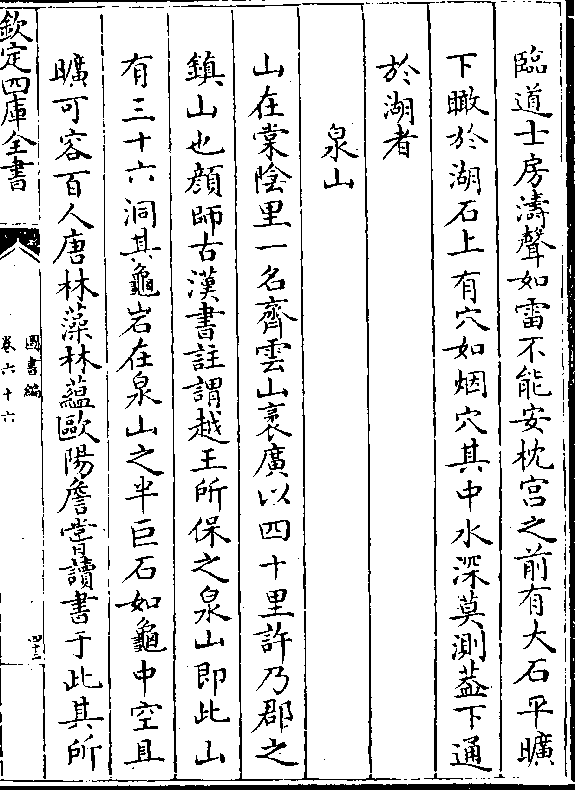 臨道士房濤聲如雷不能安枕宫之前有大石平曠
下瞰於湖石上有穴如烟穴其中水深莫測葢下通
於湖者
泉山
山在棠陰里一名齊雲山袤廣以四十里許乃郡之
鎮山也顔師古漢書註謂越王所保之泉山即此山
有三十六洞其龜岩在泉山之半巨石如龜中空且
曠可容百人唐林藻林蘊歐陽詹嘗讀書于此其所
欽定四庫全書
圖書編
卷六十六
四十三